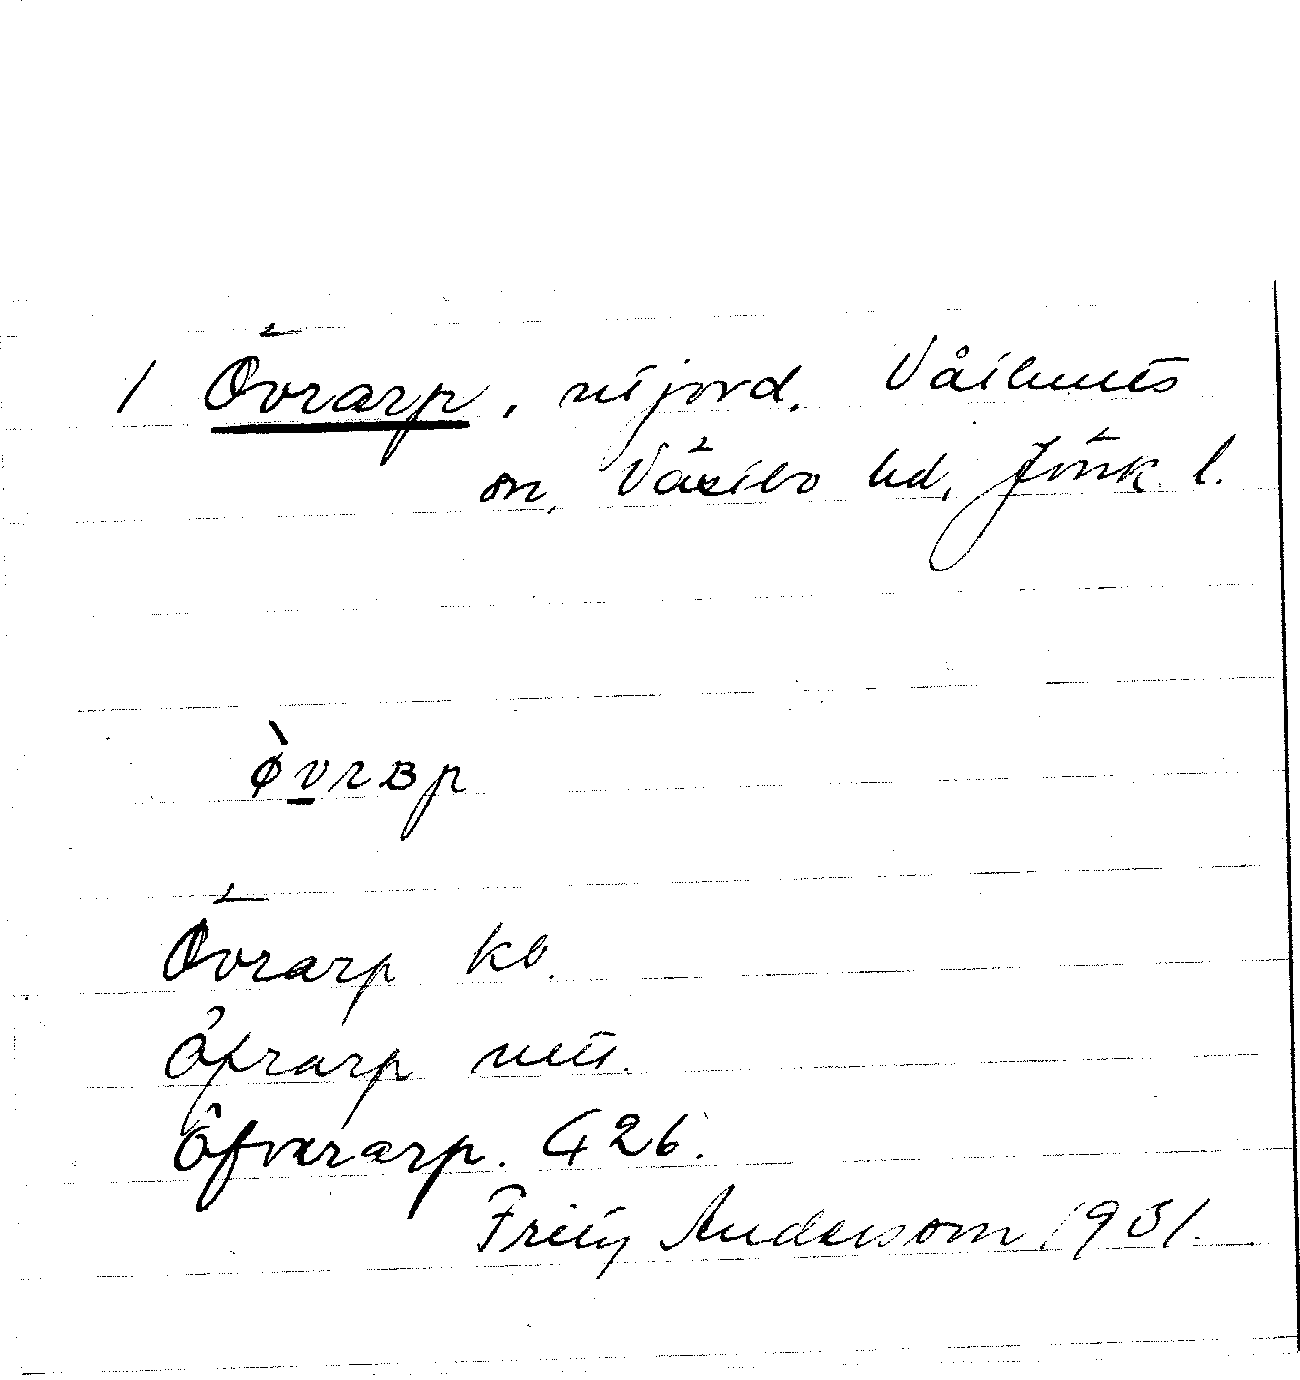 1 Övrarp, utjord. Våthults
sn, Västbo hd, Jönk l.
ø̀vrʙp
Övrarp kb.
Öfrarp
Öfvararp. G26.
Fritz Anderson 1931.